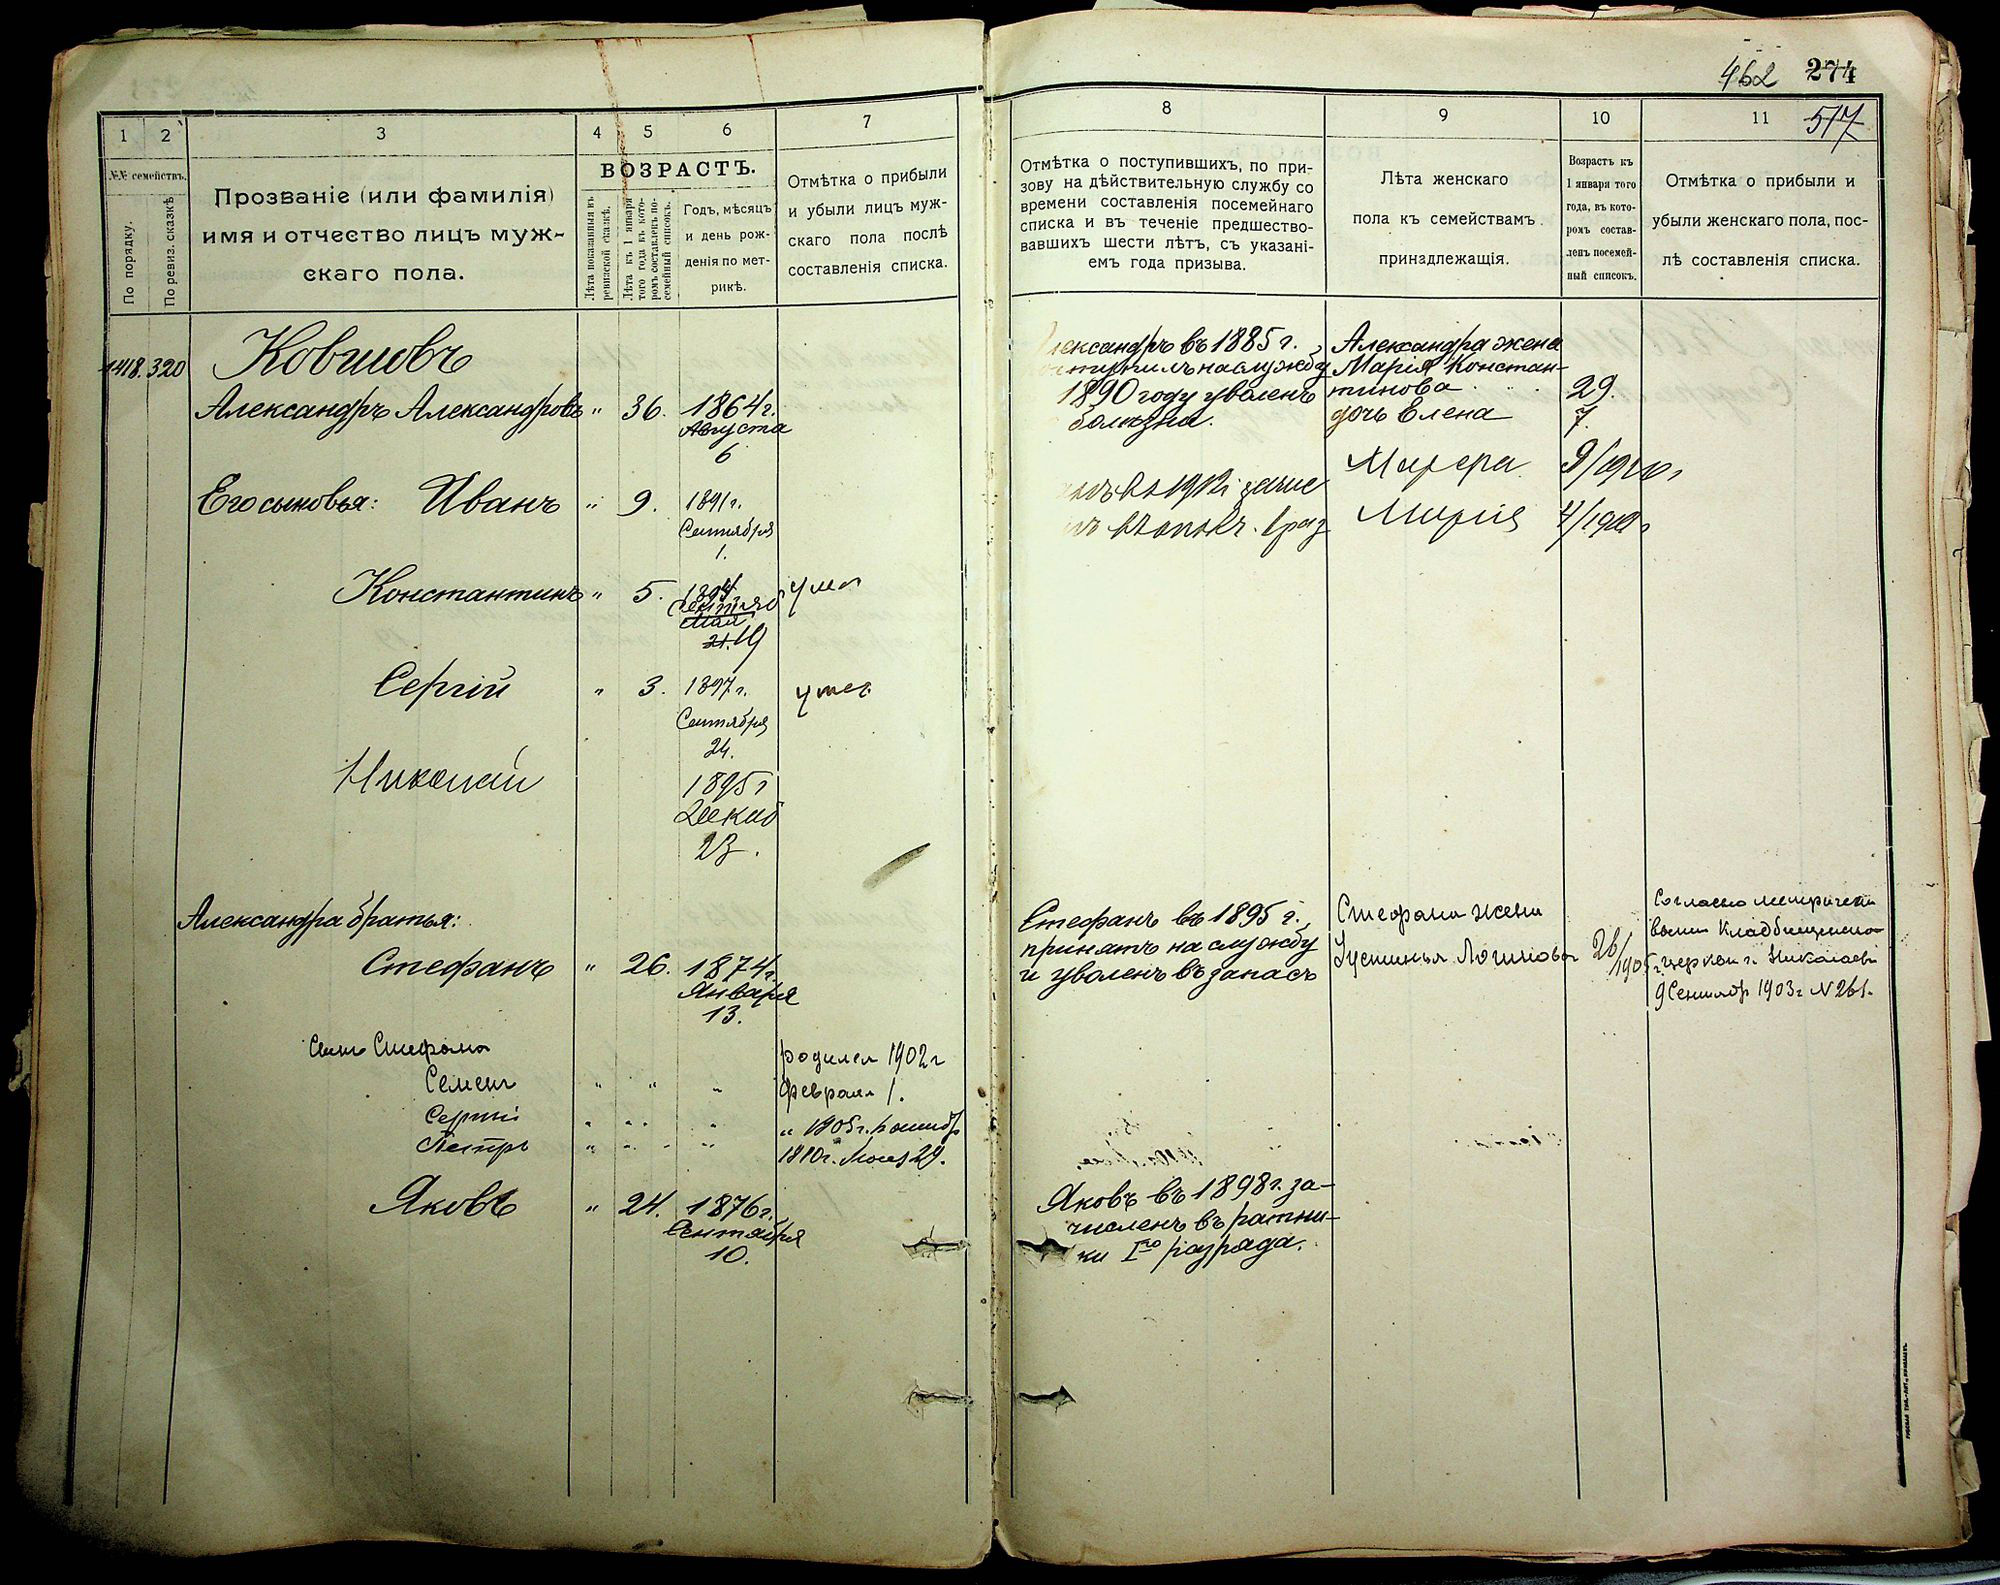 462 274
517
1 2 3 4 5 6 7
№№ семействъ.
По порядку.
По ревиз. сказкѣ
Прозваніе (или фамилія)
имя и отчество лицъ муж-
скаго пола.
ВОЗРАСТЪ.
Лѣта показанныя въ
ревизской сказкѣ.
Лѣта къ 1 января
того года въ кото-
ромъ составленъ по-
семейный списокъ.
Годъ, мѣсяцъ
и день рож-
денія по мет-
рикѣ.
Отмѣтка о прибыли
и убыли лицъ муж-
скаго пола послѣ
составленія списка.
1418. 320 Ковшовъ
Александръ Александровъ " 36. 1864 г.
Августа
6
Его сыновья: Иванъ " 9. 1891 г.
Сентября
1.
Константинъ " 5. 1894
Сентяб
Мая
21. 19
Сергій " 3. 1897 г. умер
Сентября
24.
Николай 1895 г
Декаб
23.
Александра братья:
Стефанъ " 26. 1874 г.
Января
13.
Сынъ Стефана родился 1902 г
Семенъ " " " февраля 1.
Сергій " " " " 1905 г.
Петръ " " " 1910 г. 29.
Яковъ " 24. 1876 г.
Сентября
10.
8 9 10 11
Отмѣтка о поступившихъ, по при-
зову на дѣйствительную службу со
времени составленія посемейнаго
списка и въ теченіе предшество-
вавшихъ шести лѣтъ, съ указані-
емъ года призыва.
Лѣта женскаго
пола къ семействамъ
принадлежащія.
Возрастъ къ
1 января того
года, въ кото-
ромъ состав-
ленъ посемей-
ный списокъ.
Отмѣтка о прибыли и
убыли женскаго пола, пос-
лѣ составленія списка.
лександръ въ 1885 г. Александра жена
на службу Марія Констан-
1890 году уволенъ тинова 29.
болѣзни. дочь Елена 7.
Марія
Стефанъ въ 1895 г.
принятъ на службу
и уволенъ въ запасъ
Стефана жена
Устинья Логинова 26/1905 г.
Согласно метрической
Кладбищенской
церкви г. Николаева
9 Сентябр 1903 г № 261.
Яковъ въ 1898 г. за-
численъ въ ратни-
ки Iго разряда.